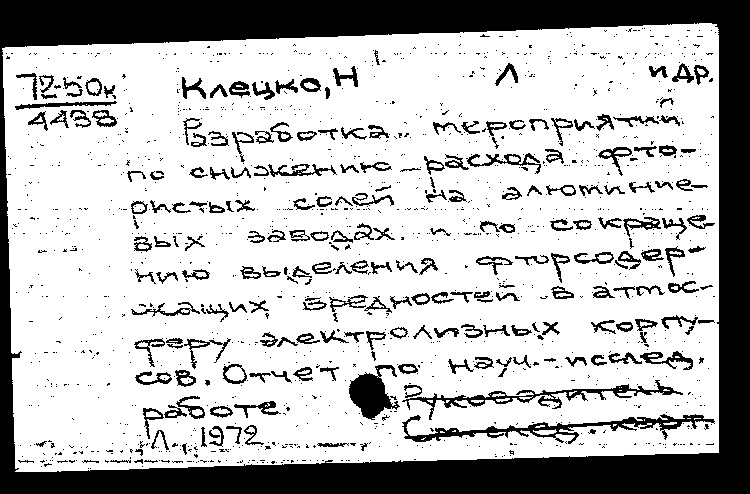 72-50к
4438
Клецко, Н Л и др.
Разработка мероприятий
по снижению расхода фто-
ристых солей на алюминие-
вых заводах и по сокраще-
нию выделения фторсодер-
жащих вредностей в атмос-
феру электролизных корпу-
сов. Отчет по науч.-исслед.
работе. Руководитель
Л., 1972 См. след. карт.